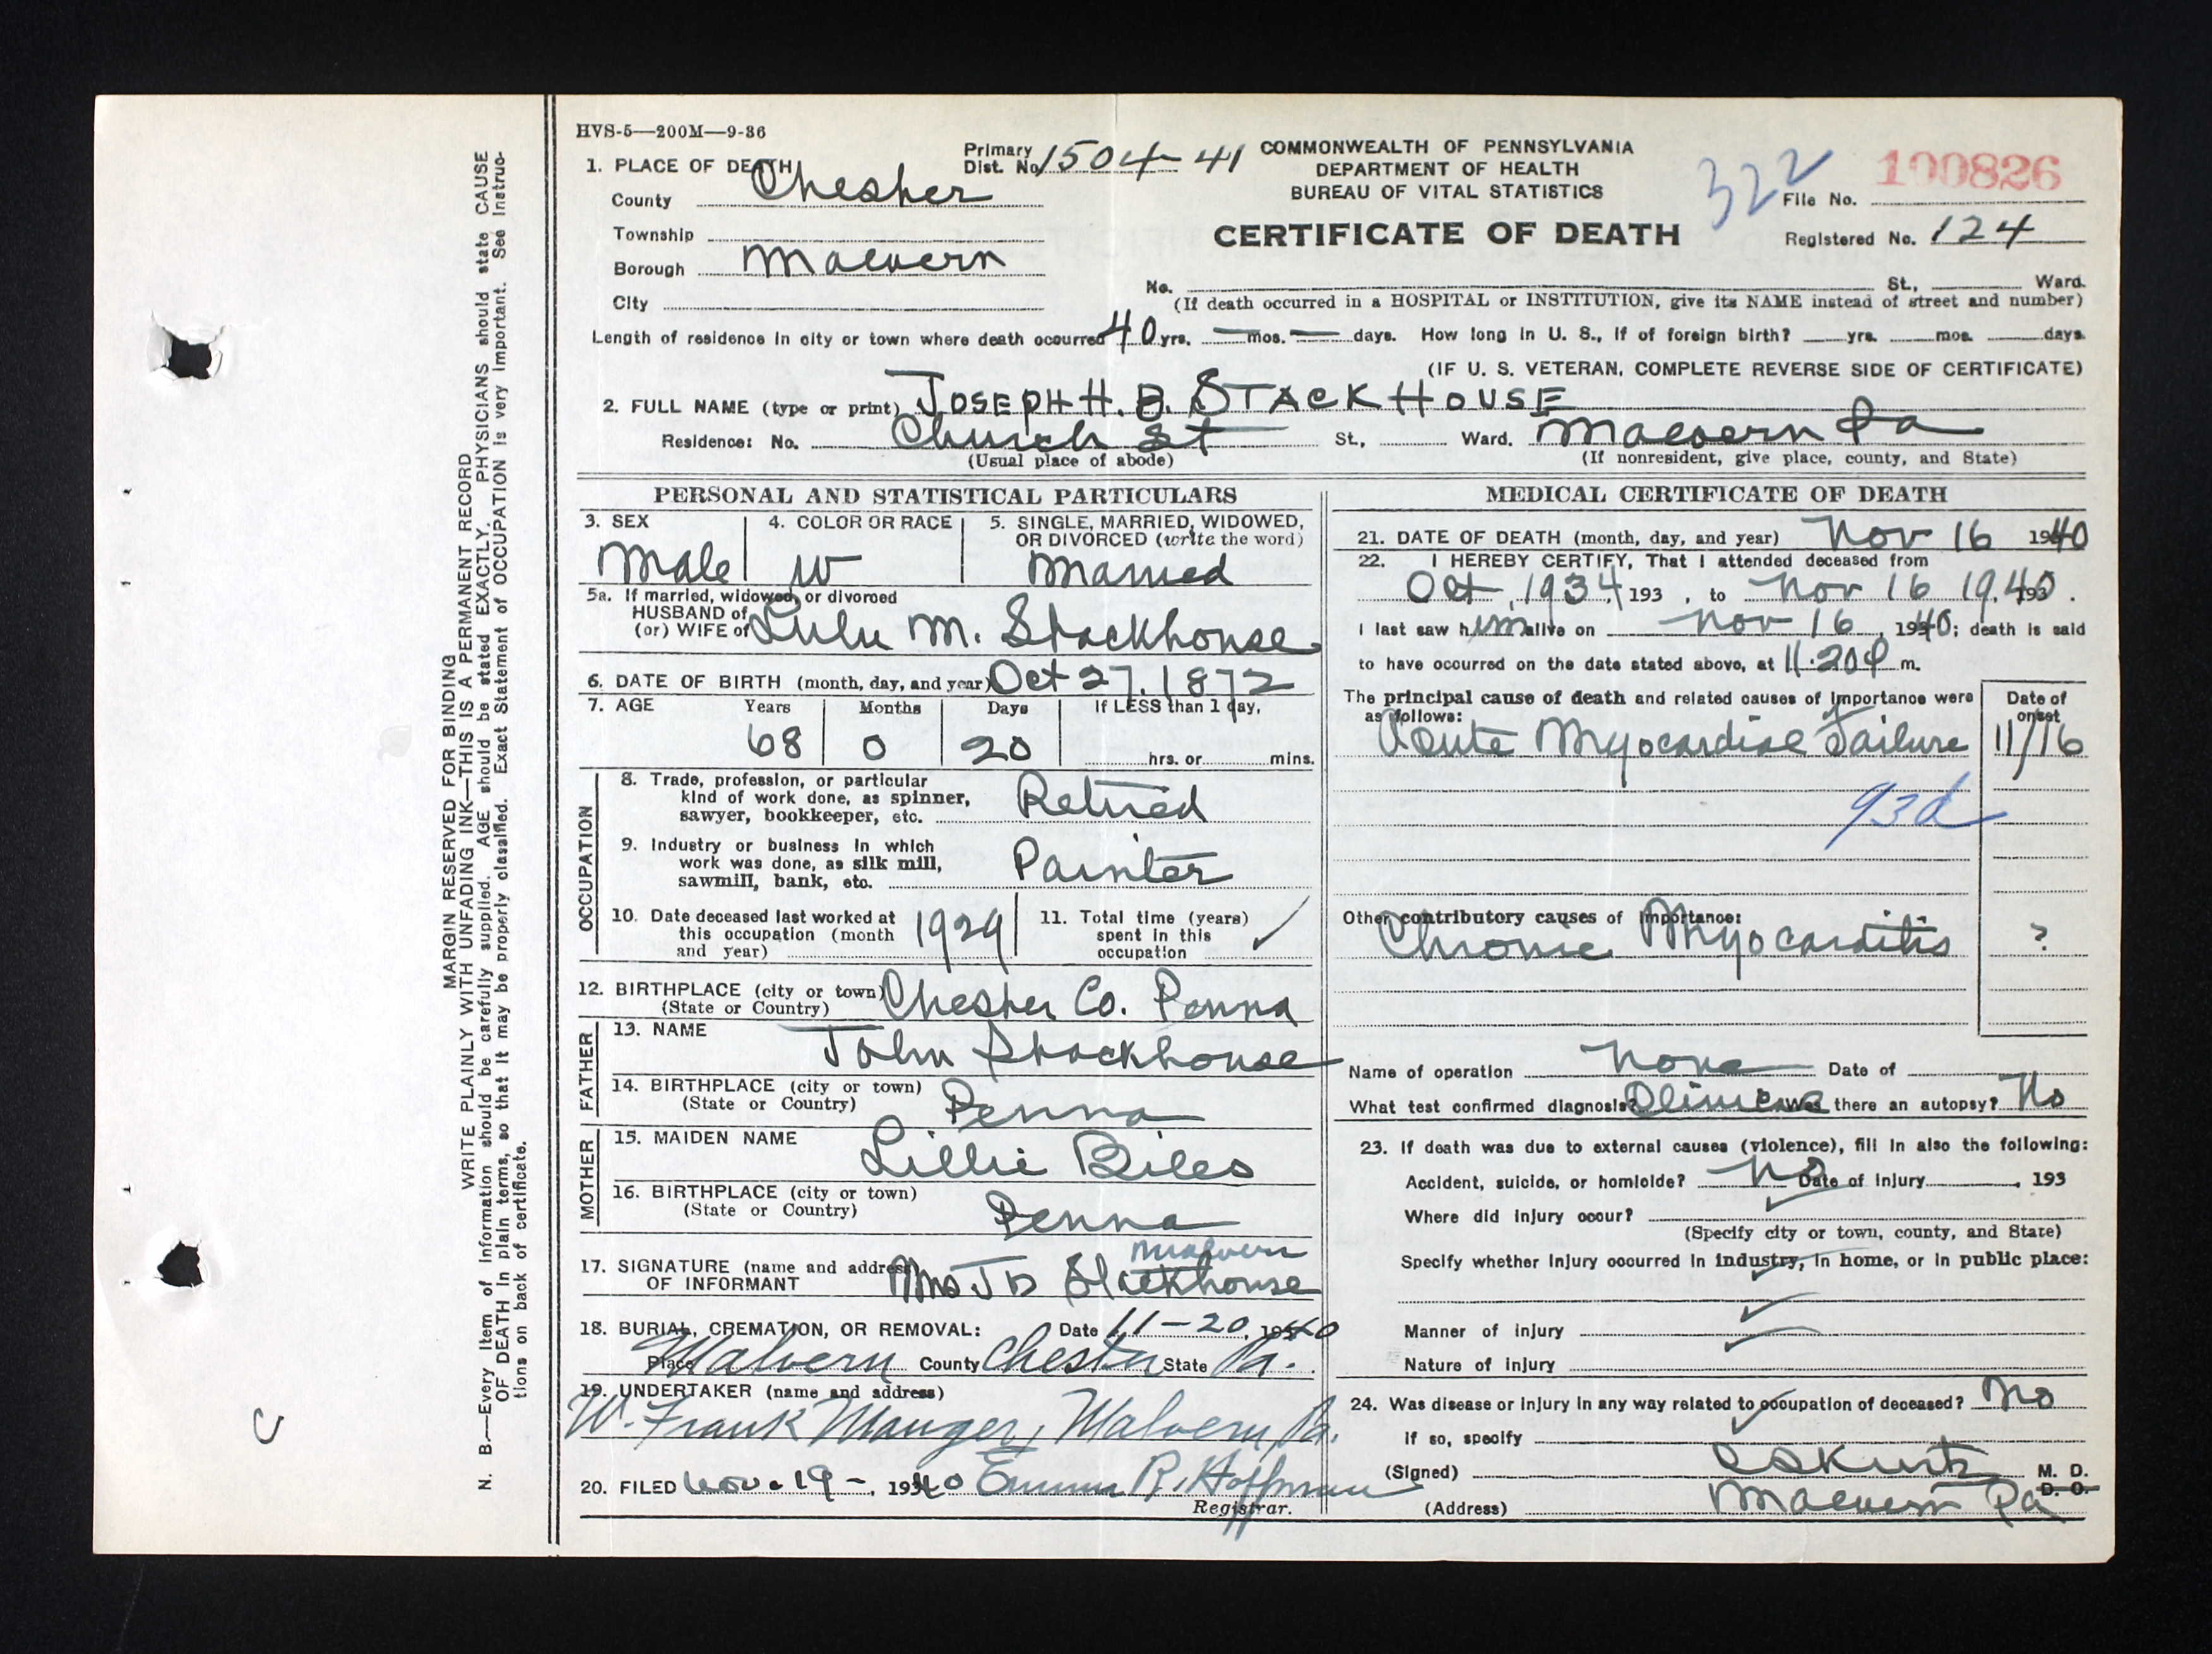 HVS-5—200M—9-36
1. PLACE OF DEATH
County Chester
Township
Borough Malvern
City
Primary
Dist. No. 1504-41
COMMONWEALTH OF PENNSYLVANIA
DEPARTMENT OF HEALTH
BUREAU OF VITAL STATISTICS
CERTIFICATE OF DEATH
322
100826
File No.
Registered No. 124
No. St., Ward.
(If death occurred in a HOSPITAL or INSTITUTION, give its NAME instead of street and number)
Length of residence in city or town where death occurred 40 yrs. — mos. — days. How long in U. S., if of foreign birth? yrs. mos. days.
(IF U. S. VETERAN, COMPLETE REVERSE SIDE OF CERTIFICATE)
2. FULL NAME (type or print) JOSEPH H. B. STACKHOUSE
Residence: No. Church St St., Ward. Malvern Pa
(Usual place of abode) (If nonresident, give place, county, and State)
PERSONAL AND STATISTICAL PARTICULARS
3. SEX
Male
4. COLOR OR RACE
W
5. SINGLE, MARRIED, WIDOWED,
OR DIVORCED (write the word)
Married
5a. If married, widowed, or divorced
HUSBAND of
(or) WIFE of Lulu M. Stackhouse
6. DATE OF BIRTH (month, day, and year) Oct 27. 1872
7. AGE Years Months Days If LESS than 1 day,
68 0 20 hrs. or mins.
OCCUPATION
8. Trade, profession, or particular
kind of work done, as spinner,
sawyer, bookkeeper, etc. Retired
9. Industry or business in which
work was done, as silk mill,
sawmill, bank, etc. Painter
10. Date deceased last worked at
this occupation (month
and year) 1929
11. Total time (years)
spent in this
occupation
12. BIRTHPLACE (city or town) Chester Co. Penna
(State or Country)
FATHER
13. NAME John Stackhouse
14. BIRTHPLACE (city or town)
(State or Country) Penna
MOTHER
15. MAIDEN NAME Lillie Biles
16. BIRTHPLACE (city or town)
(State or Country) Penna
17. SIGNATURE (name and address) Malvern
OF INFORMANT Mrs J B Stackhouse
18. BURIAL, CREMATION, OR REMOVAL: Date 11-20, 1940
Place Malvern County Chester State Pa.
19. UNDERTAKER (name and address)
W. Frank Mauger, Malvern, Pa.
20. FILED Nov. 19-, 1940 Emma R. Hoffman
Registrar.
MEDICAL CERTIFICATE OF DEATH
21. DATE OF DEATH (month, day, and year) Nov 16 1940
22. I HEREBY CERTIFY, That I attended deceased from
Oct, 1934, 193 , to Nov 16 1940 193 .
I last saw him alive on Nov 16, 1940; death is said
to have occurred on the date stated above, at 11.20 P m.
The principal cause of death and related causes of importance were
as follows:
Date of
onset
Acute Myocardial Failure 11/16
93d
Other contributory causes of importance:
Chronic Myocarditis ?
Name of operation None Date of
What test confirmed diagnosis? Clinical Was there an autopsy? No
23. If death was due to external causes (violence), fill in also the following:
Accident, suicide, or homicide? No Date of injury , 193
Where did injury occur?
(Specify city or town, county, and State)
Specify whether injury occurred in industry, in home, or in public place:
Manner of injury
Nature of injury
24. Was disease or injury in any way related to occupation of deceased? No
If so, specify
(Signed) Kurtz M. D.
D. O.
(Address) Malvern Pa
MARGIN RESERVED FOR BINDING
WRITE PLAINLY WITH UNFADING INK—THIS IS A PERMANENT RECORD
N. B.—Every item of information should be carefully supplied. AGE should be stated EXACTLY. PHYSICIANS should state CAUSE
OF DEATH in plain terms, so that it may be properly classified. Exact Statement of OCCUPATION is very important. See Instruc-
tions on back of certificate.
C